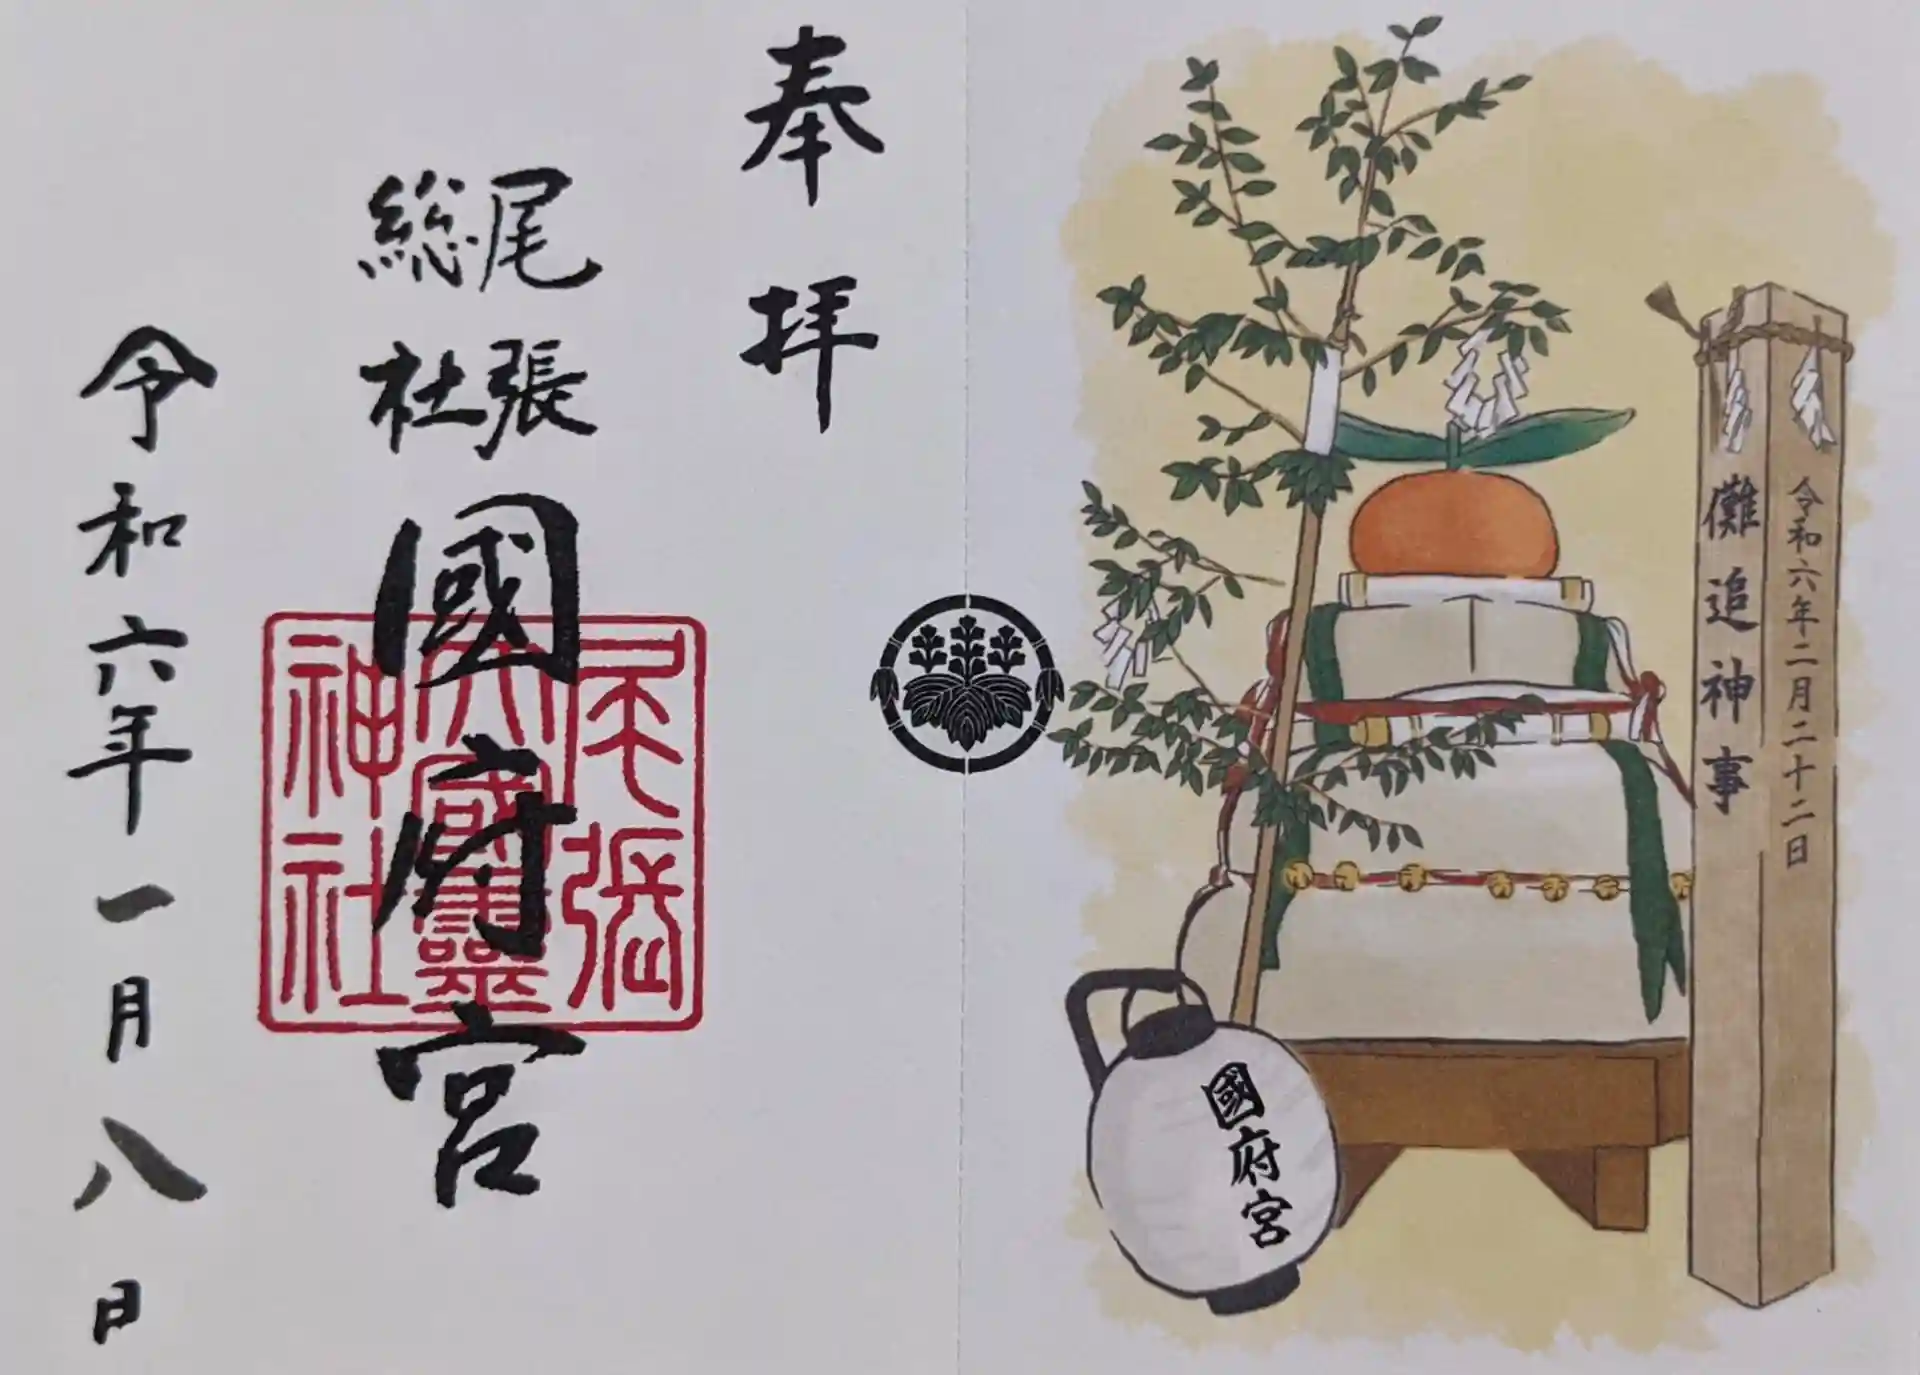 令和六年二月二十二日
儺追神事
國府宮
奉拝
尾張
総社
國府宮
尾張
大國靈
神社
令和六年一月八日